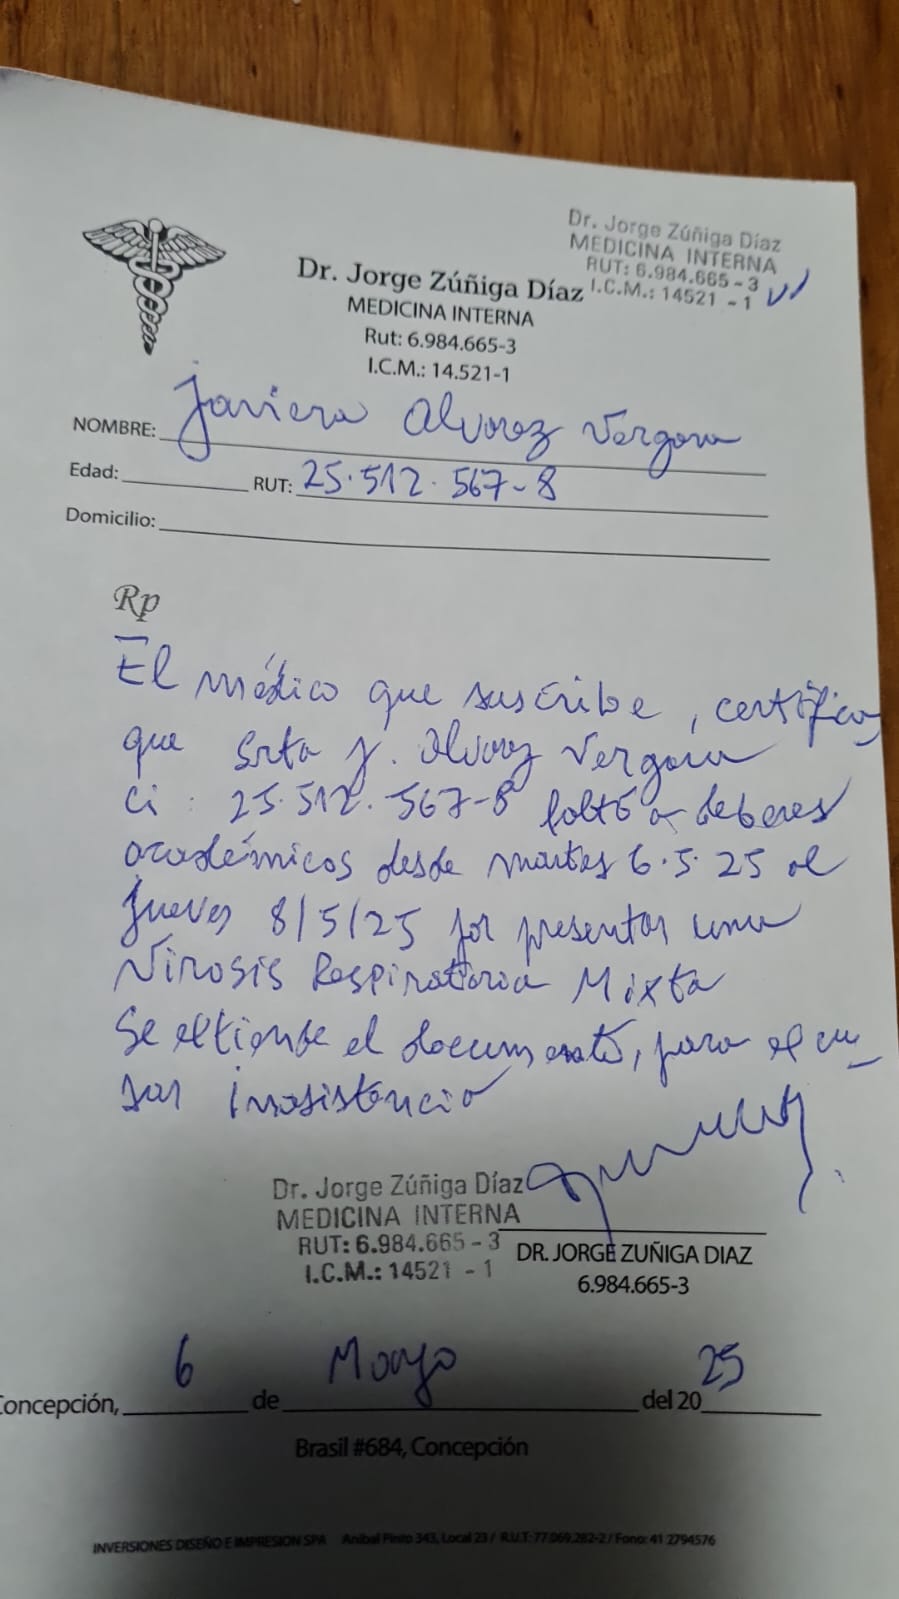 Dr. Jorge Zúñiga Díaz
MEDICINA INTERNA
RUT: 6.984.665 - 3
I.C.M.: 14521 - 1
Dr. Jorge Zúñiga Díaz
MEDICINA INTERNA
Rut: 6.984.665-3
I.C.M.: 14.521-1
NOMBRE: Javiera Alvarez Vergara
Edad: RUT: 25.512.567-8
Domicilio:
Rp
El médico que suscribe, certifica
que Srta J. Alvarez Vergara
ci: 25.512.567-8 faltó a deberes
académicos desde martes 6.5.25 al
jueves 8/5/25 por presentar una
Virosis Respiratoria Mixta
Se extiende el documento, para excu_
sar inasistencia
Dr. Jorge Zúñiga Díaz
MEDICINA INTERNA
RUT: 6.984.665 - 3
I.C.M.: 14521 - 1
DR. JORGE ZUÑIGA DIAZ
6.984.665-3
Concepción, 6 de Mayo del 2025
Brasil #684, Concepción
INVERSIONES DISEÑO E IMPRESION SPA Anibal Pinto 343, Local 23 / R.U.T: 77.069.282-2 / Fono: 41 2794576